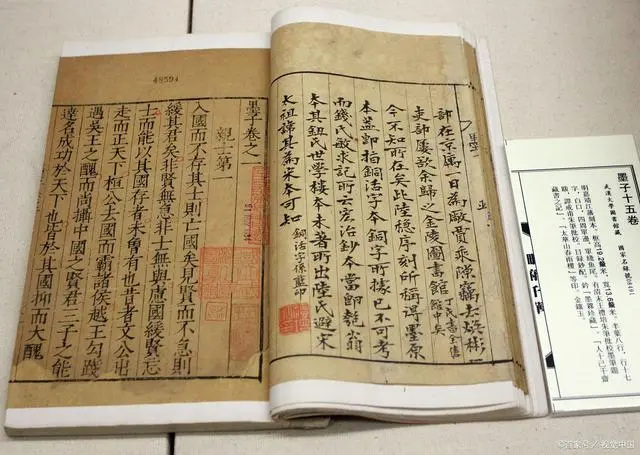 墨子十五卷
武漢大學圖書館藏　國家名錄號
明嘉靖江藩刻本。框高19.2釐米，寬13.6釐米。半葉八行，行十七
字，白口，四周單邊，單綫魚尾。有清末王禮培朱筆批校墨筆題
跋，譚戒甫朱筆批校。目錄鈔配。鈐「珍藏」、「人十己千齋
藏書之記」、「太華山春雨樓」等印。金鑲玉。
在京寓一日為敵賈乘隙竊去
吏部屢欲余歸之金陵圖書館 丁氏書全售館中矣
今不知所在矣此陸穩序刻所稱得墨原
本蓋即指銅活字本銅字所據已不可考
而錢氏敏求記所云宏治鈔本當即匏翁
本其鈕氏世學樓本未著所出陸氏避宋
太祖諱其為宋本可知 銅活字係藍印
48594
墨子卷之一
親士第一
入國而不存其士則亡國矣見賢而不急則
緩其君矣非賢無急非士無與慮國緩賢忘
士而能以其國存者未曾有也昔者文公出
走而正天下桓公去國而霸諸侯越王勾踐
遇吳王之醜而尚攝中國之賢君三子之能
達名成功於天下也皆於其國抑而大醜
©百家号/视觉中国